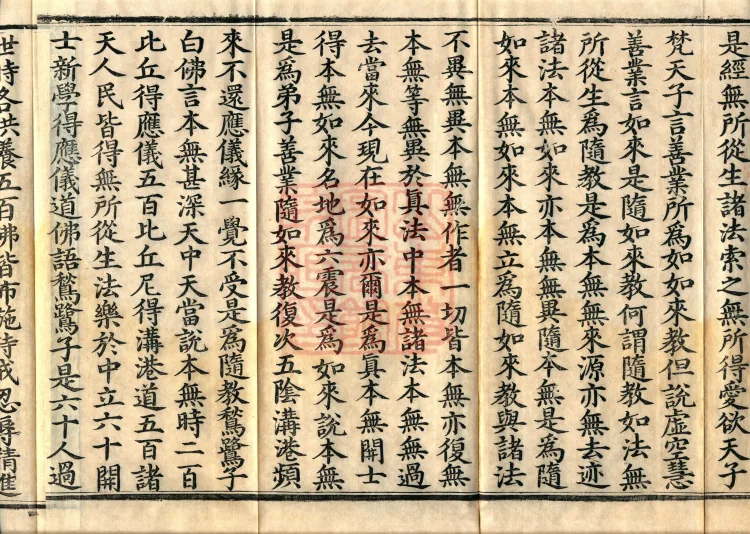 是經無所從生諸法索之無所得愛欲天子
梵天子言善業所為如如來教但說虛空慧
善業言如來是隨如來教何謂隨教如法無
所從生為隨教是為本無無來源亦無去迹
諸法本無如來亦本無無異隨本無是為隨
如來本無如來本無立為隨如來教與諸法
不異無異本無無作者一切皆本無亦復無
本無等無異於真法中本無諸法本無無過
去當來今現在如來亦爾是為真本無開士
得本無如來名地為六震是為如來說本無
是為弟子善業隨如來教復次五陰溝港頻
來不還應儀緣一覺不受是為隨教鶖鷺子
白佛言本無甚深天中天當說本無時二百
比丘得應儀五百比丘尼得溝港道五百諸
天人民皆得無所從生法樂於中立六十開
士新學得應儀道佛語鶖鷺子是六十人過
世時各供養五百佛皆布施持戒忍辱精進